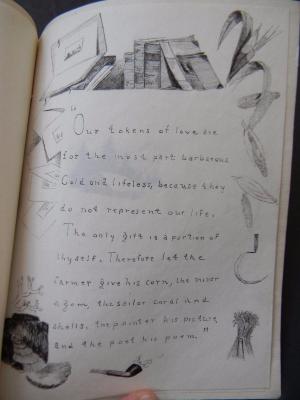 "Our tokens of love are
for the most part barbarous
Cold and lifeless, because they
do not represent our life.
The only gift is a portion of
thyself. Therefore let the
farmer give his corn, the miner
a gem, the sailor coral and
shells, the painter his picture,
and the poet his poem."